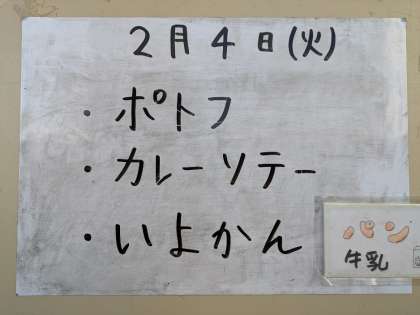 2月4日(火)
・ポトフ
・カレーソテー
・いよかん
パン
牛乳